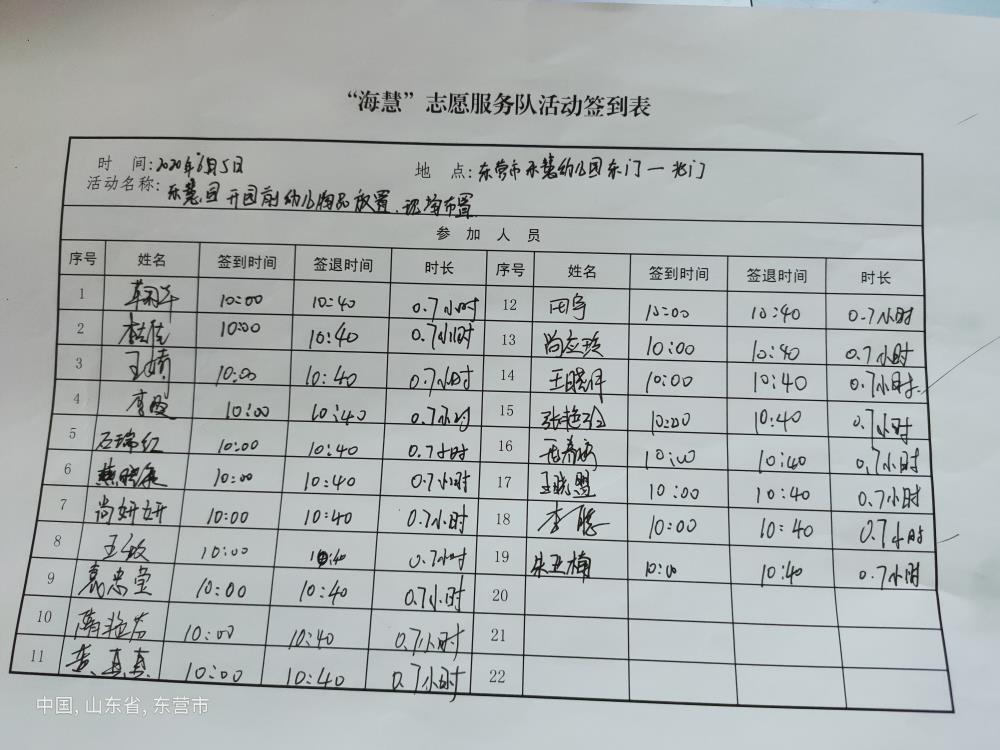 “海慧”志愿服务队活动签到表
时 间:2020年6月5日 地 点:东营市东慧幼儿园东门一北门
活动名称:东慧园开园前幼儿物品放置、现场布置
参 加 人 员
序号 姓名 签到时间 签退时间 时长 序号 姓名 签到时间 签退时间 时长
1 10:00 10:40 0.7小时 12 田宇 10:00 10:40 0.7小时
2 10:00 10:40 0.7小时 13 尚应玲 10:00 10:40 0.7小时
3 王婧 10:00 10:40 0.7小时 14 王晓伟 10:00 10:40 0.7小时
4 李霞 10:00 10:40 0.7小时 15 张艳 10:00 10:40 0.7小时
5 石瑞红 10:00 10:40 0.7小时 16 10:00 10:40 0.7小时
6 10:00 10:40 0.7小时 17 王晓盟 10:00 10:40 0.7小时
7 尚妍妍 10:00 10:40 0.7小时 18 李 10:00 10:40 0.7小时
8 王敏 10:00 10:40 0.7小时 19 朱亚楠 10:00 10:40 0.7小时
9 袁忠莹 10:00 10:40 0.7小时 20
10 10:00 10:40 0.7小时 21
11 黄真真 10:00 10:40 0.7小时 22
中国, 山东省, 东营市